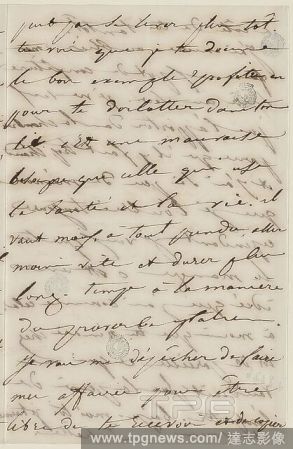 pas se lever plus tôt
je te donne
le bon exemple. Profites en
pour te dorlotter dans ton
lit c'est une mauvaise
besogne que celle qui use
la santé et la vie. il
vaut mieux, à tout prendre, aller
moins vite et durer plus
long-temps à la manière
du proverbe
Je vais me dépêcher de faire
mes affaires pour être
libre de te recevoir et de copier
TPG
www.tpgnews.com / 達志影像